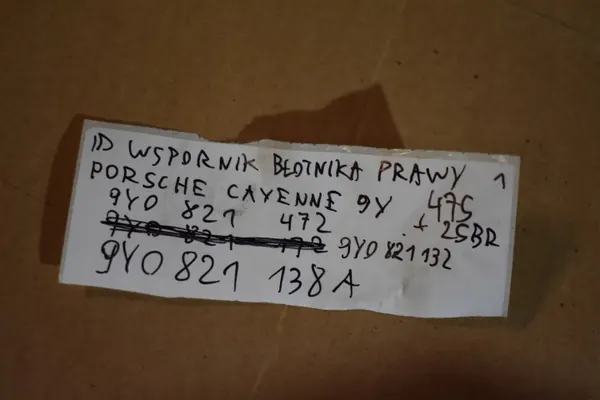 ID WSPORNIK BŁOTNIKA PRAWY 1
PORSCHE CAYENNE 9Y 475
9Y0 821 472 + 25BR
9Y0 821 132
9Y0 821 138A